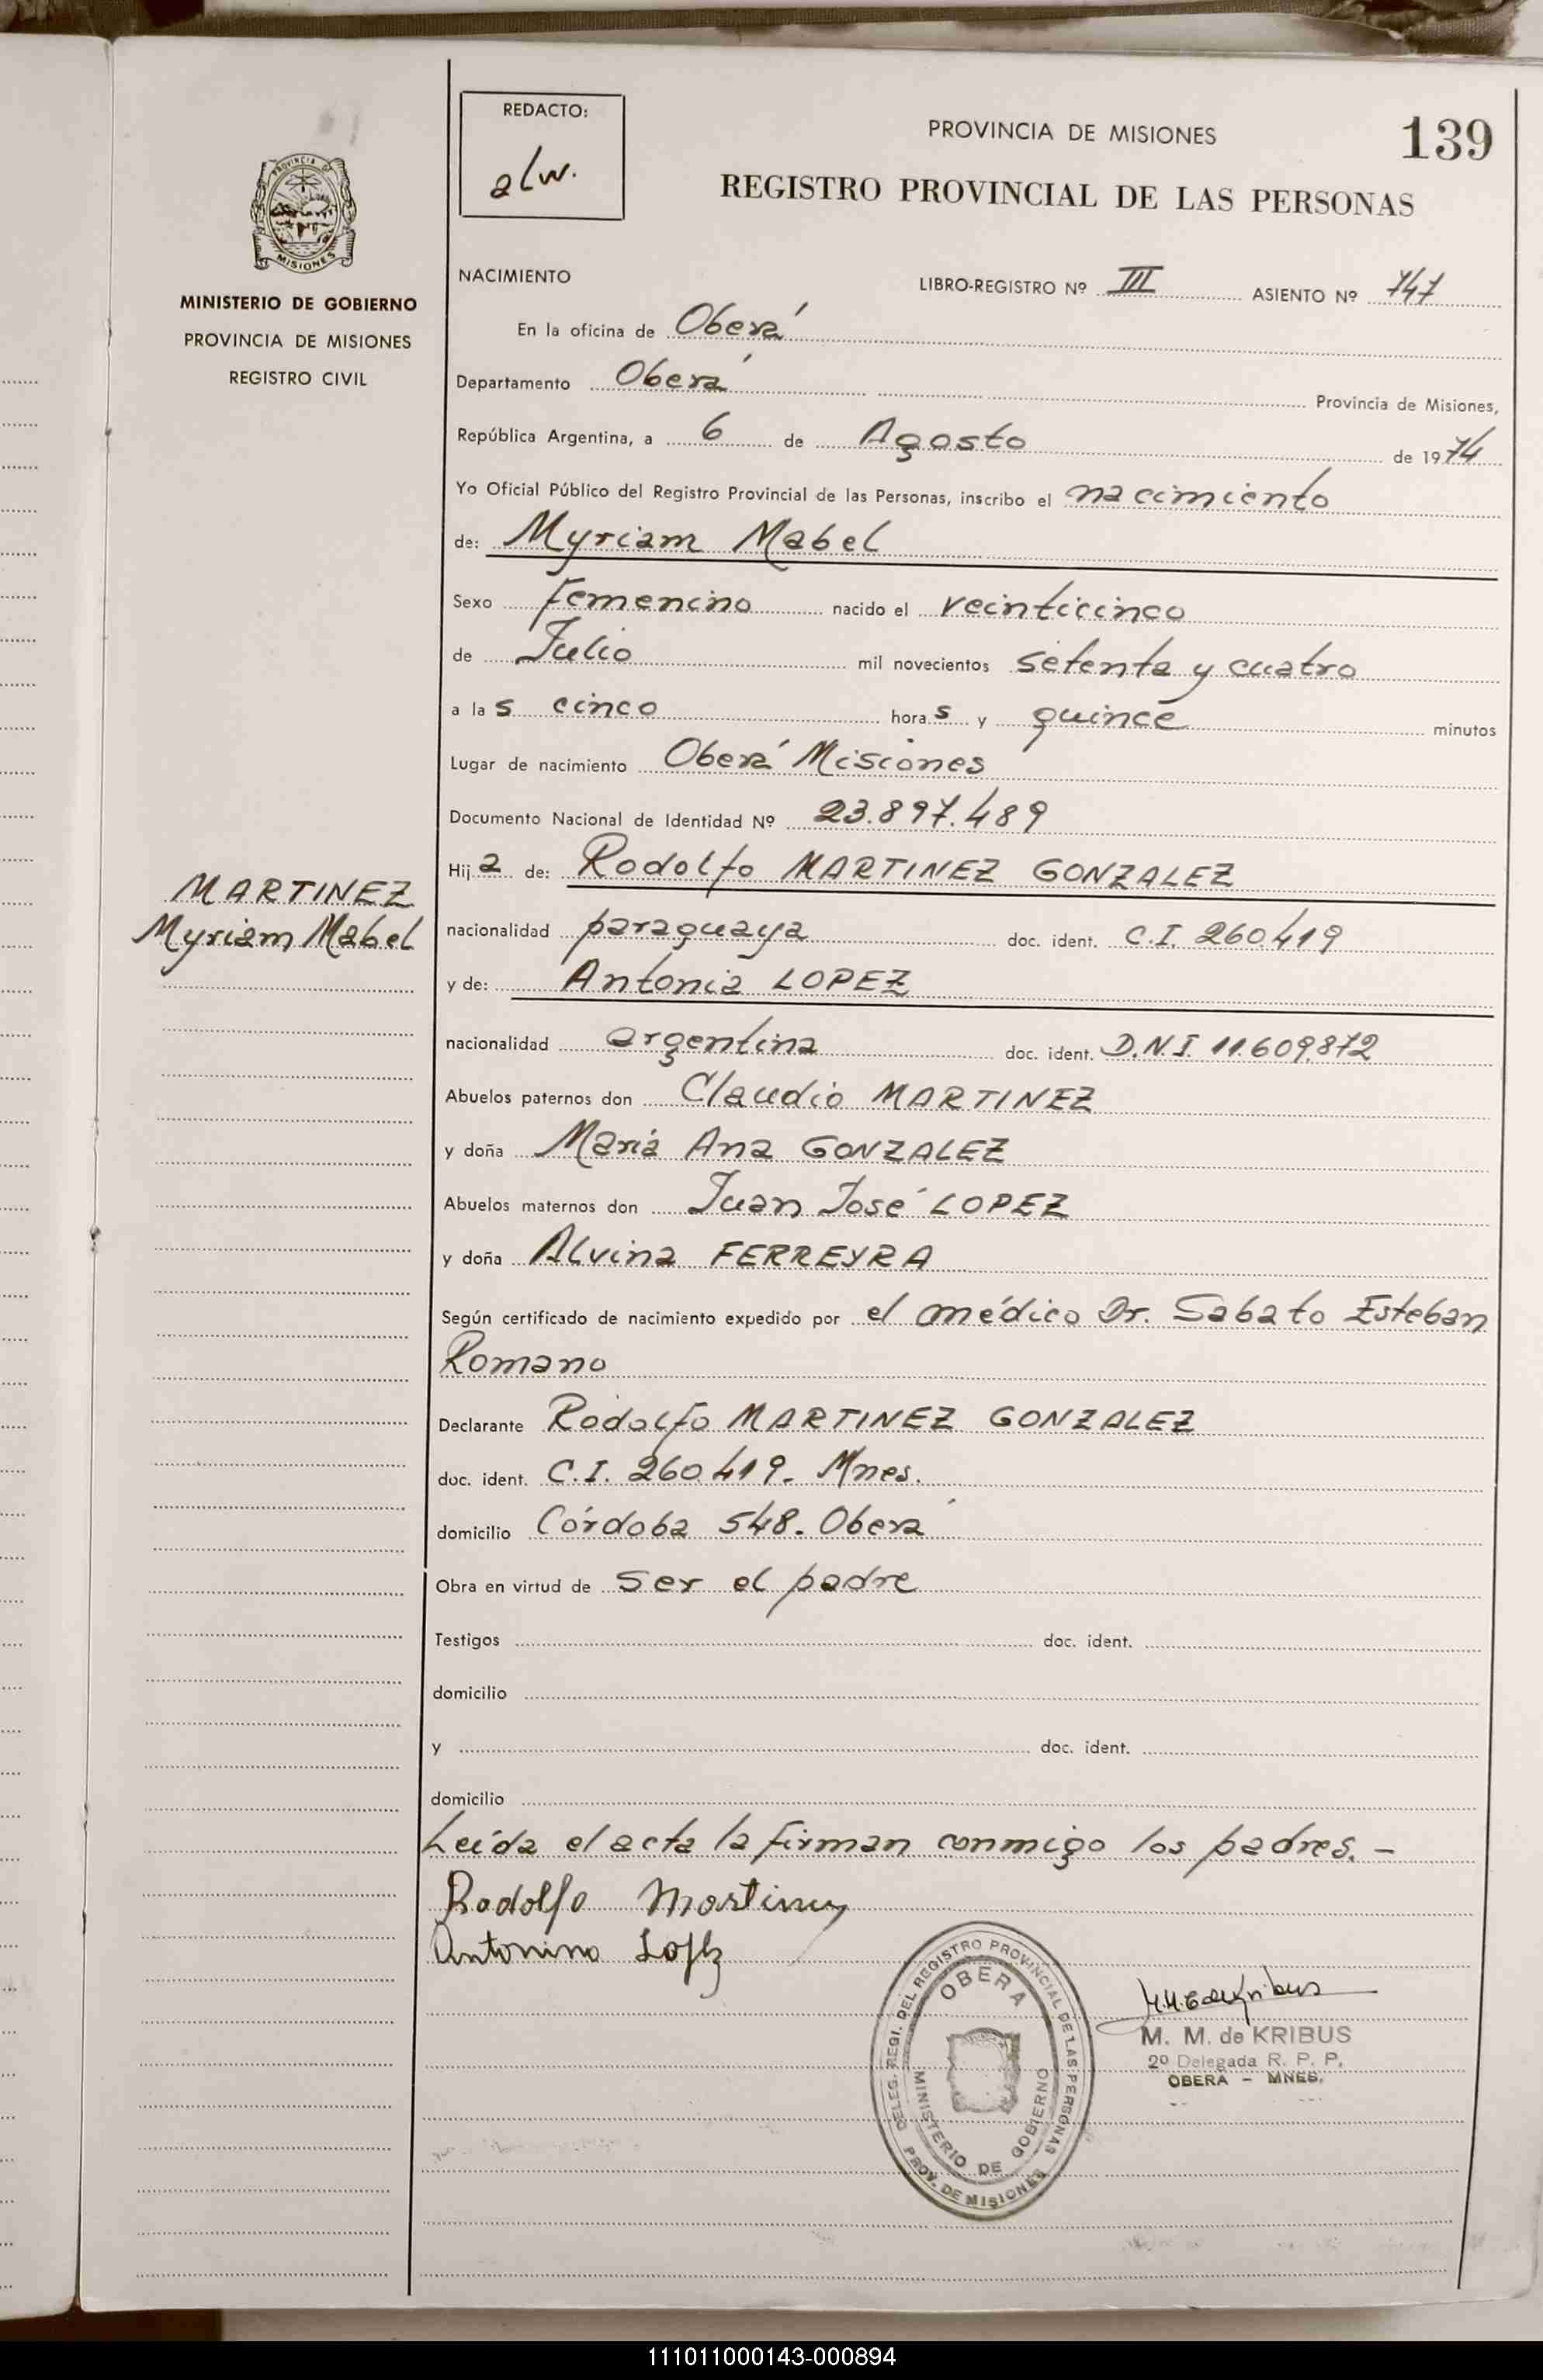 REDACTO:
alw.
PROVINCIA DE MISIONES
139
REGISTRO PROVINCIAL DE LAS PERSONAS
PROVINCIA DE
MISIONES
MINISTERIO DE GOBIERNO
PROVINCIA DE MISIONES
REGISTRO CIVIL
NACIMIENTO LIBRO-REGISTRO Nº III ASIENTO Nº 747
En la oficina de Oberá
Departamento Oberá Provincia de Misiones,
República Argentina, a 6 de Agosto de 1974
Yo Oficial Público del Registro Provincial de las Personas, inscribo el nacimiento
de: Myriam Mabel
Sexo femenino nacido el veinticinco
de Julio mil novecientos setenta y cuatro
a las cinco horas y quince minutos
Lugar de nacimiento Oberá Misiones
Documento Nacional de Identidad Nº 23.897.489
Hija de: Rodolfo MARTINEZ GONZALEZ
MARTINEZ
Myriam Mabel
nacionalidad paraguaya doc. ident. C.I. 260.419
y de: Antonia LOPEZ
nacionalidad argentina doc. ident. D.N.I. 11.609.872
Abuelos paternos don Claudio MARTINEZ
y doña Maria Ana GONZALEZ
Abuelos maternos don Juan José LOPEZ
y doña Alvina FERREYRA
Según certificado de nacimiento expedido por el médico Dr. Sabato Esteban
Romano
Declarante Rodolfo MARTINEZ GONZALEZ
doc. ident. C.I. 260.419. Mnes.
domicilio Córdoba 548. Oberá
Obra en virtud de ser el padre
Testigos doc. ident.
domicilio
y doc. ident.
domicilio
Leída el acta la firman conmigo los padres. -
Rodolfo Martinez
Antonina Lopez
DELEG. REGI. DEL REGISTRO PROVINCIAL DE LAS PERSONAS
OBERA
MINISTERIO DE GOBIERNO
PROV. DE MISIONES
M. M. de KRIBUS
2º Delegada R. P. P.
OBERA - MNES.
111011000143-000894